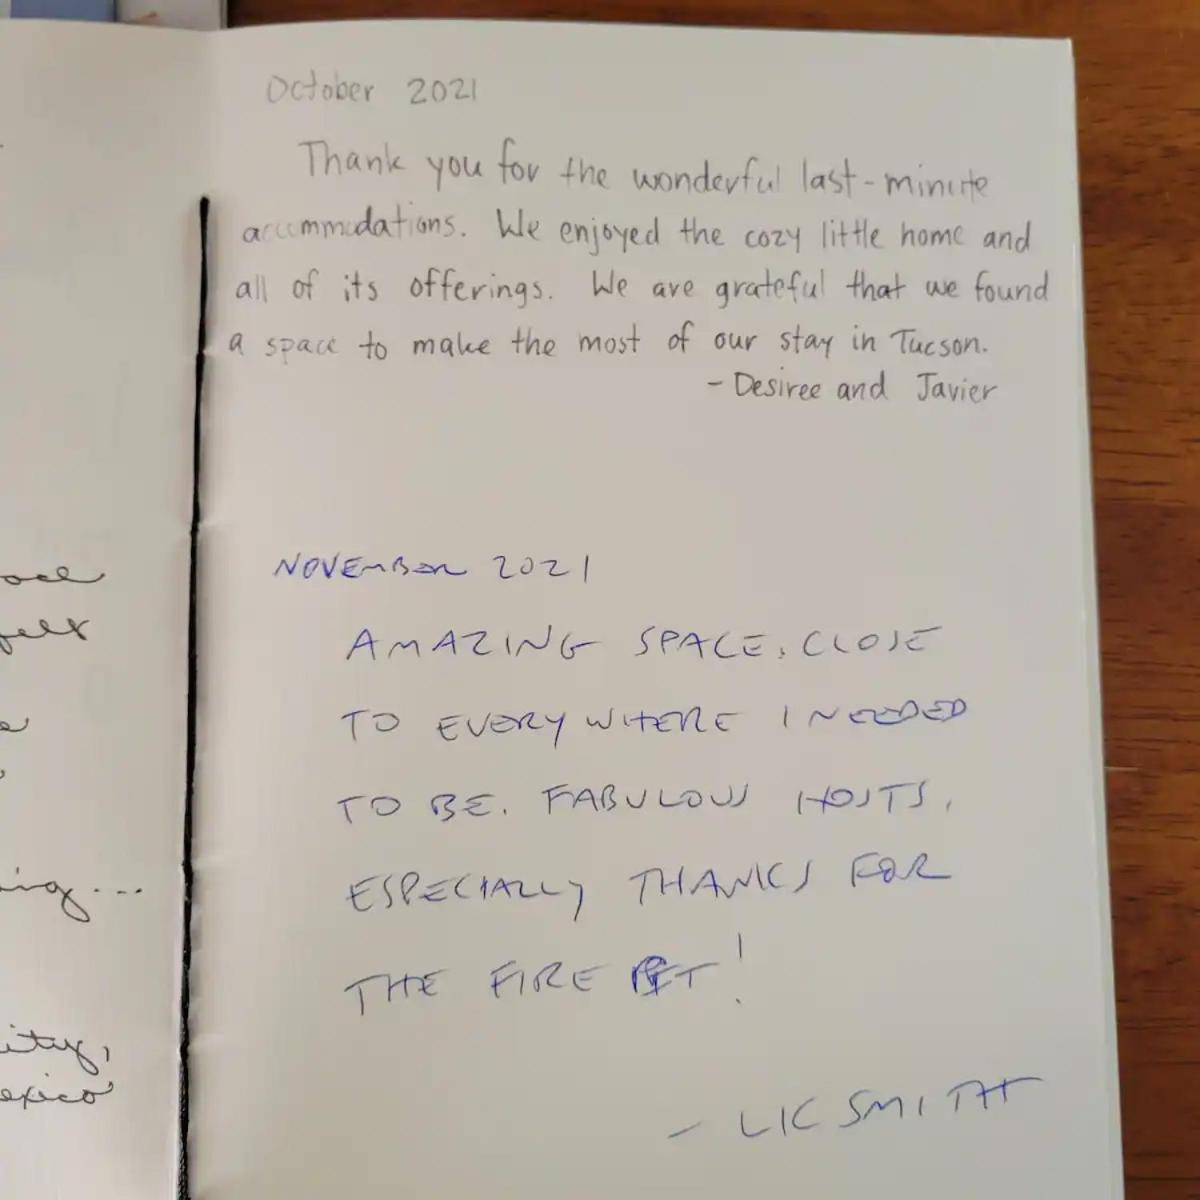 oce
felt
ing...
ity,
exico
October 2021
Thank you for the wonderful last-minute
accommodations. We enjoyed the cozy little home and
all of its offerings. We are grateful that we found
a space to make the most of our stay in Tucson.
- Desiree and Javier
NOVEMBER 2021
AMAZING SPACE. CLOSE
TO EVERYWHERE I NEEDED
TO BE. FABULOUS HOSTS.
ESPECIALLY THANKS FOR
THE FIRE PIT!
- LIC SMITH